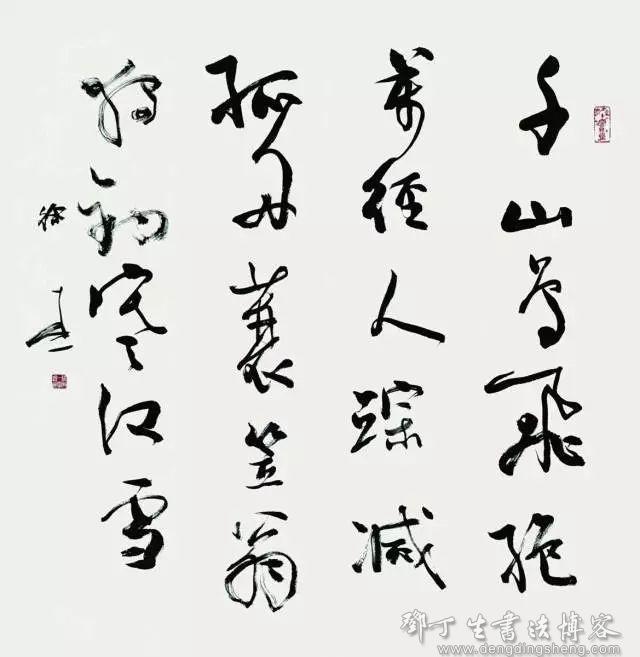 千山鳥飛絶
萬徑人踪滅
孤舟蓑笠翁
獨釣寒江雪
徐
鄧丁生書法博客
www.dengdingsheng.com